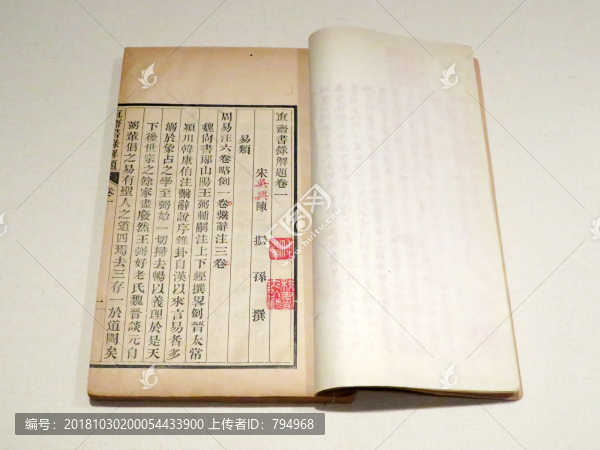 直齋書錄解題卷一
宋吳興陳振孫撰
易類
周易注六卷略例一卷繫辭注三卷
魏尚書郎山陽王弼輔嗣注上下經撰畧例晉太常
潁川韓康伯注繫辭說序雜卦自漢以來言易者多
溺於象占之學至弼始一切掃去暢以義理於是天
下後世宗之餘家盡廢然王弼好老氏魏晉談元自
弼輩倡之易有聖人之道四焉去三存一於道闕矣
直齋書錄解題
卷一
一
编号：20181030200054433900 上传者ID：794968